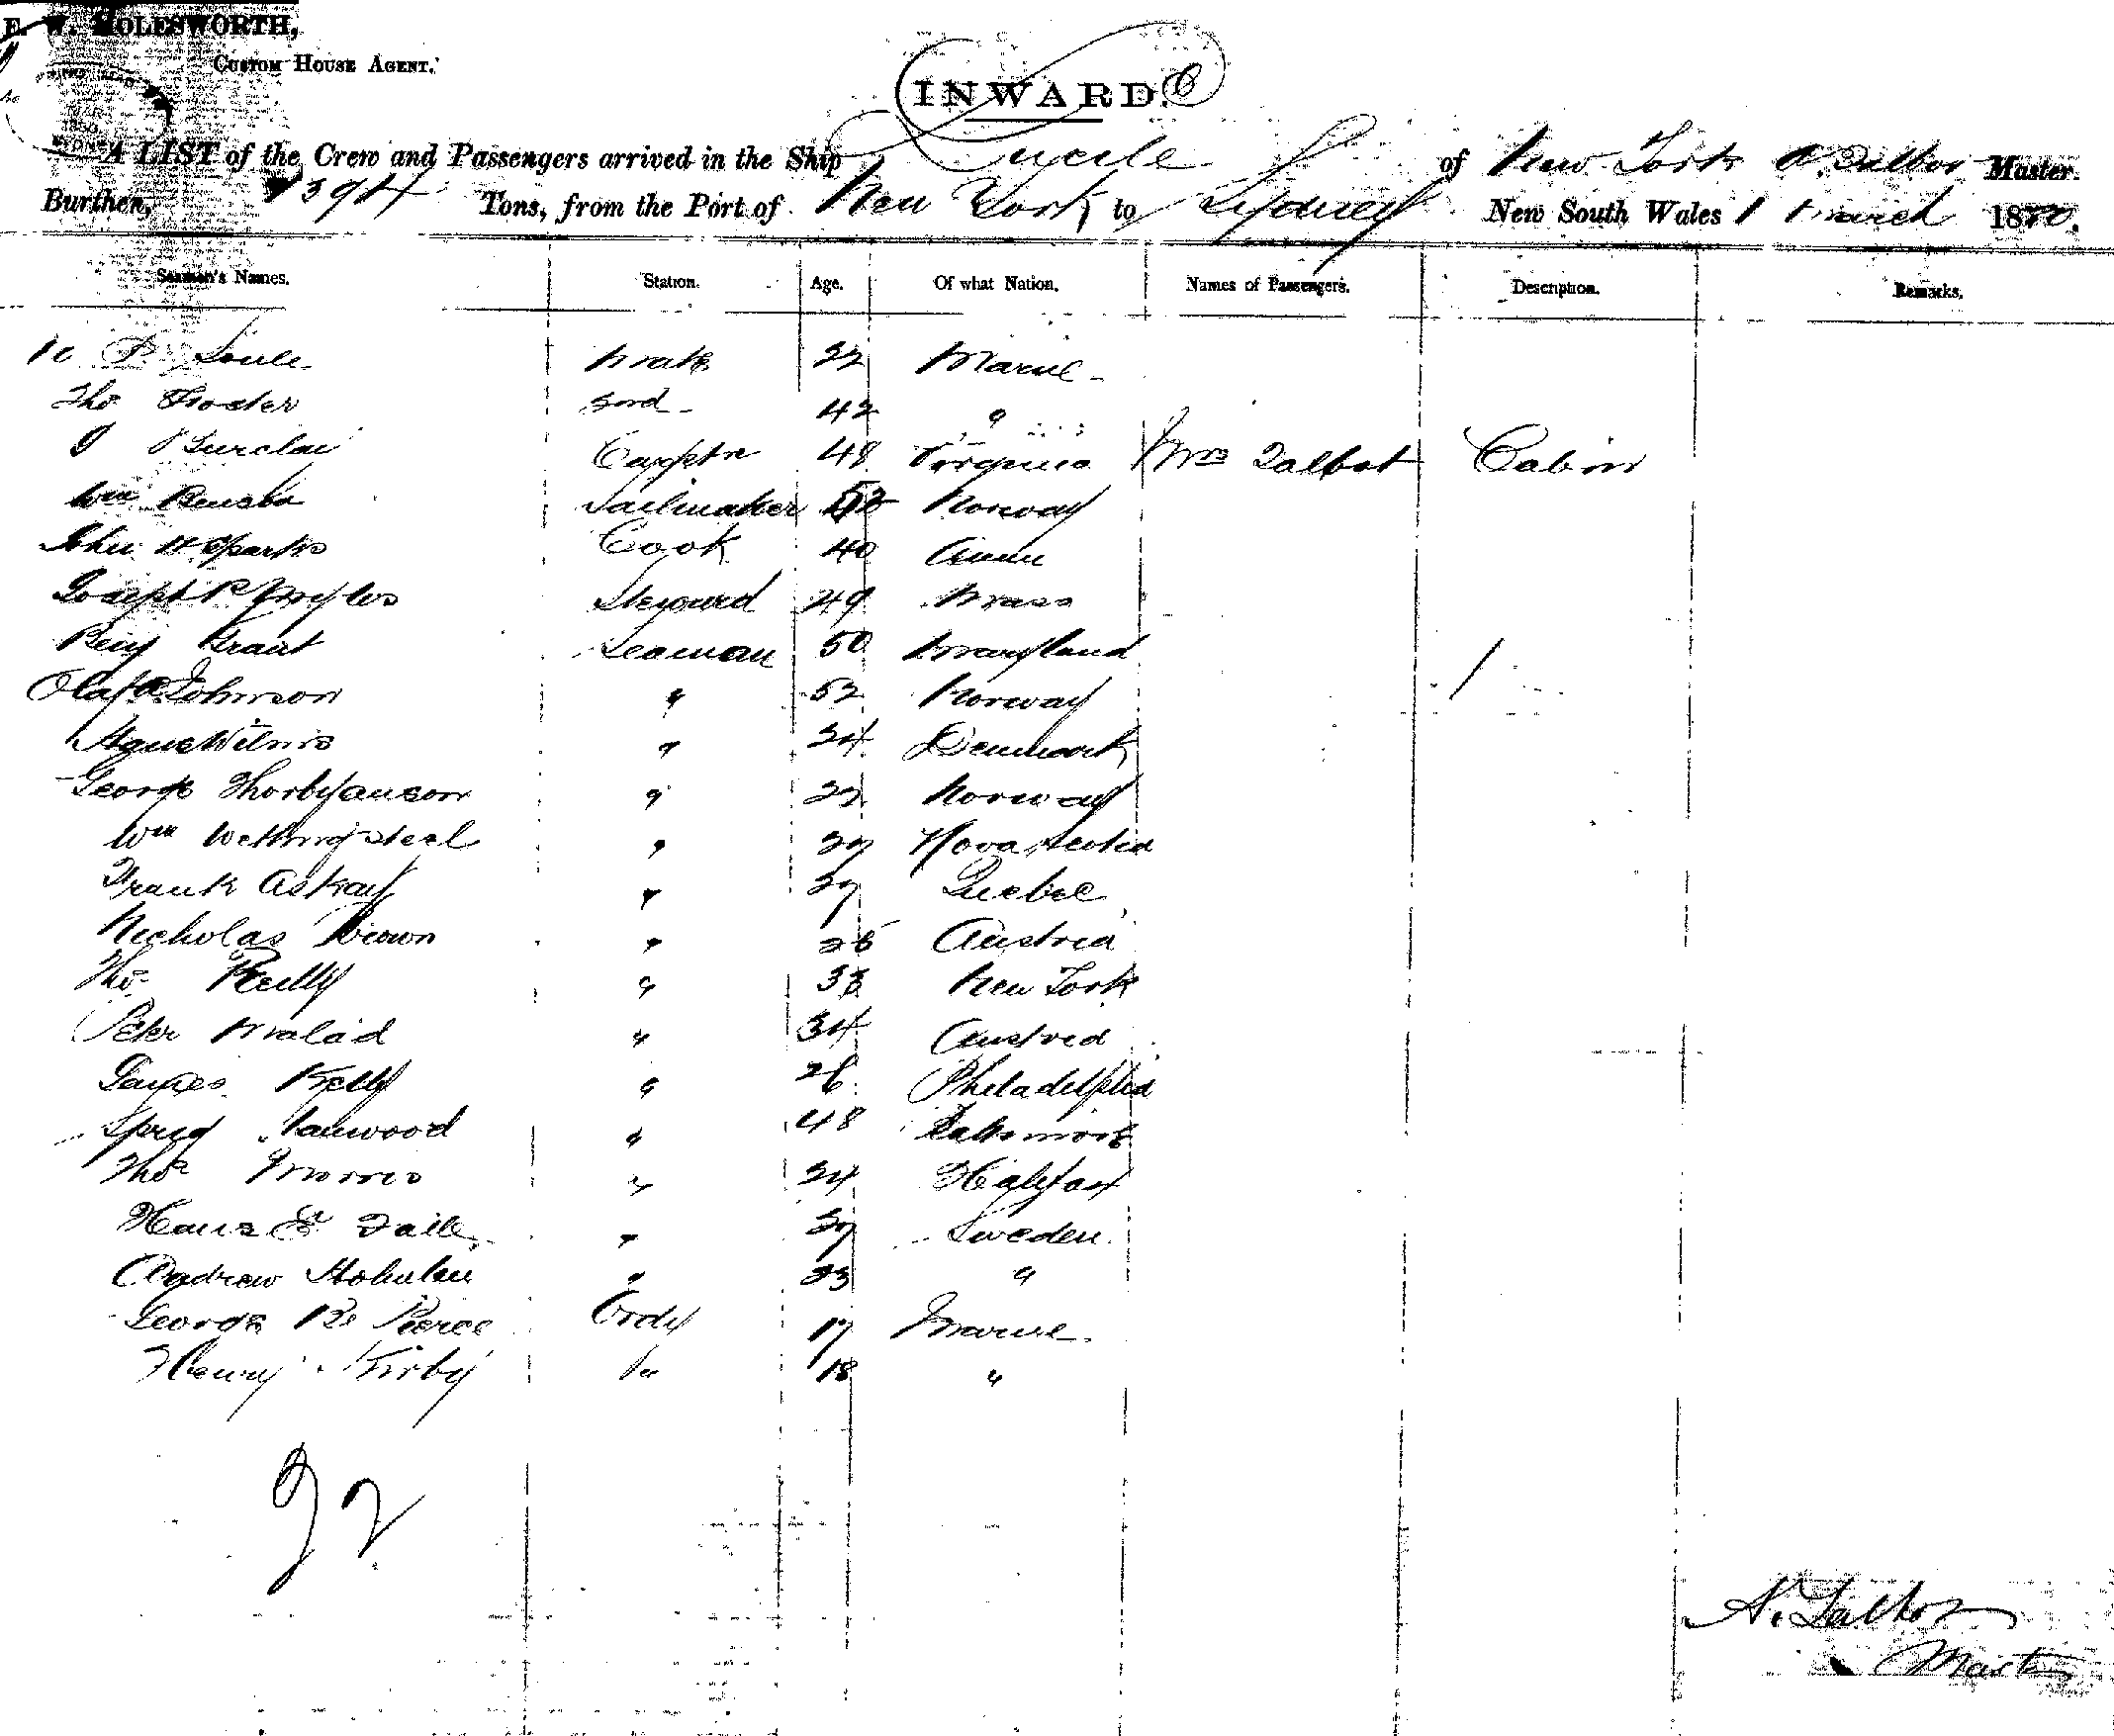 E. W. MOLESWORTH,
CUSTOM HOUSE AGENT.
INWARD.
A LIST of the Crew and Passengers arrived in the Ship Lucile of New York A. Talbot Master.
Burthen, 1394 Tons, from the Port of New York to Sydney New South Wales 1 March 1880.
Seamen's Names. Station. Age. Of what Nation. Names of Passengers. Description. Remarks.
P. Soule Mate Maine
Tho Foster Secnd 42 "
Carptr 48 Virginia Mrs Talbot Cabin
Wm Sailmaker 52 Norway
John H Sparks Cook 40
Joseph R Myles Steward 49 Mass
Benj Grant Seaman 50 Maryland
Olaf Johnson " 52 Norway
" 34 Denmark
George " Norway
Wm " Nova Scotia
Frank Askay " Quebec
Nicholas Brown " 26 Austria
Tho Reilly " 33 New York
Peter Malad " 34 Austria
James Kelly " 26 Philadelphia
Stanwood " 48 Baltimore
Thos Morris " 24 Halifax
Hans " Sweden
Andrew " 23 "
George Pierce Ordy 17 Maine
Henry Kirby Do 18 "
22
A. Talbot
Master